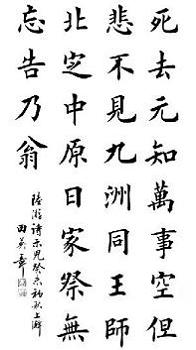 死去元知萬事空但
悲不見九洲同王師
北定中原日家祭無
忘告乃翁
陸游詩示兒癸未初秋上澣
田英章